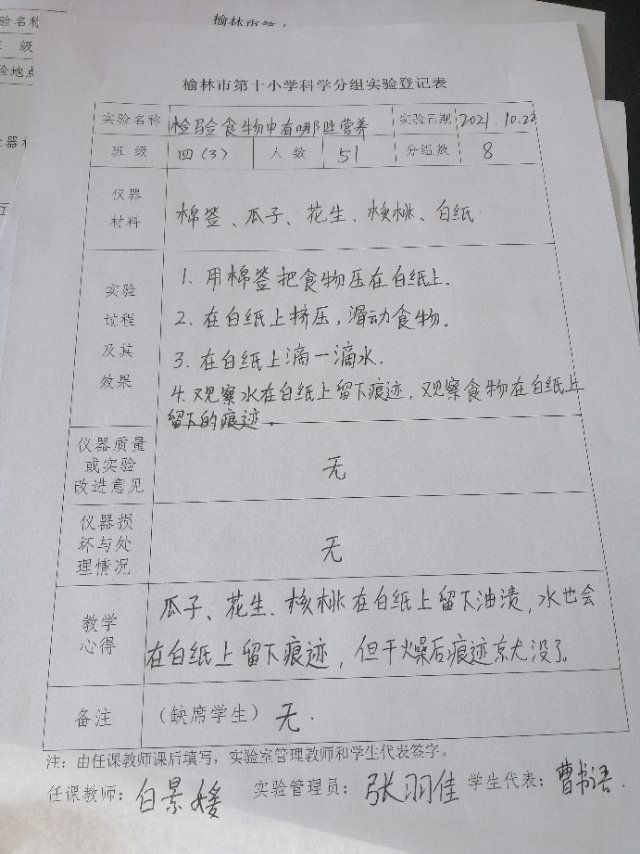 榆林市第十小学科学分组实验登记表
实验名称 检验食物中有哪些营养 实验日期 2021.10.22
班级 四(3) 人数 51 分组数 8
仪器
材料
棉签、瓜子、花生、核桃、白纸
实验
过程
及其
效果
1. 用棉签把食物压在白纸上.
2. 在白纸上挤压,滑动食物。
3. 在白纸上滴一滴水.
4. 观察水在白纸上留下痕迹,观察食物在白纸上
留下的痕迹.
仪器质量
或实验
改进意见
无
仪器损
坏与处
理情况
无
教学
心得
瓜子、花生、核桃在白纸上留下油渍,水也会
在白纸上留下痕迹,但干燥后痕迹就没了。
备注 (缺席学生) 无.
注:由任课教师课后填写,实验室管理教师和学生代表签字。
任课教师:白景媛 实验管理员:张羽佳 学生代表:曹